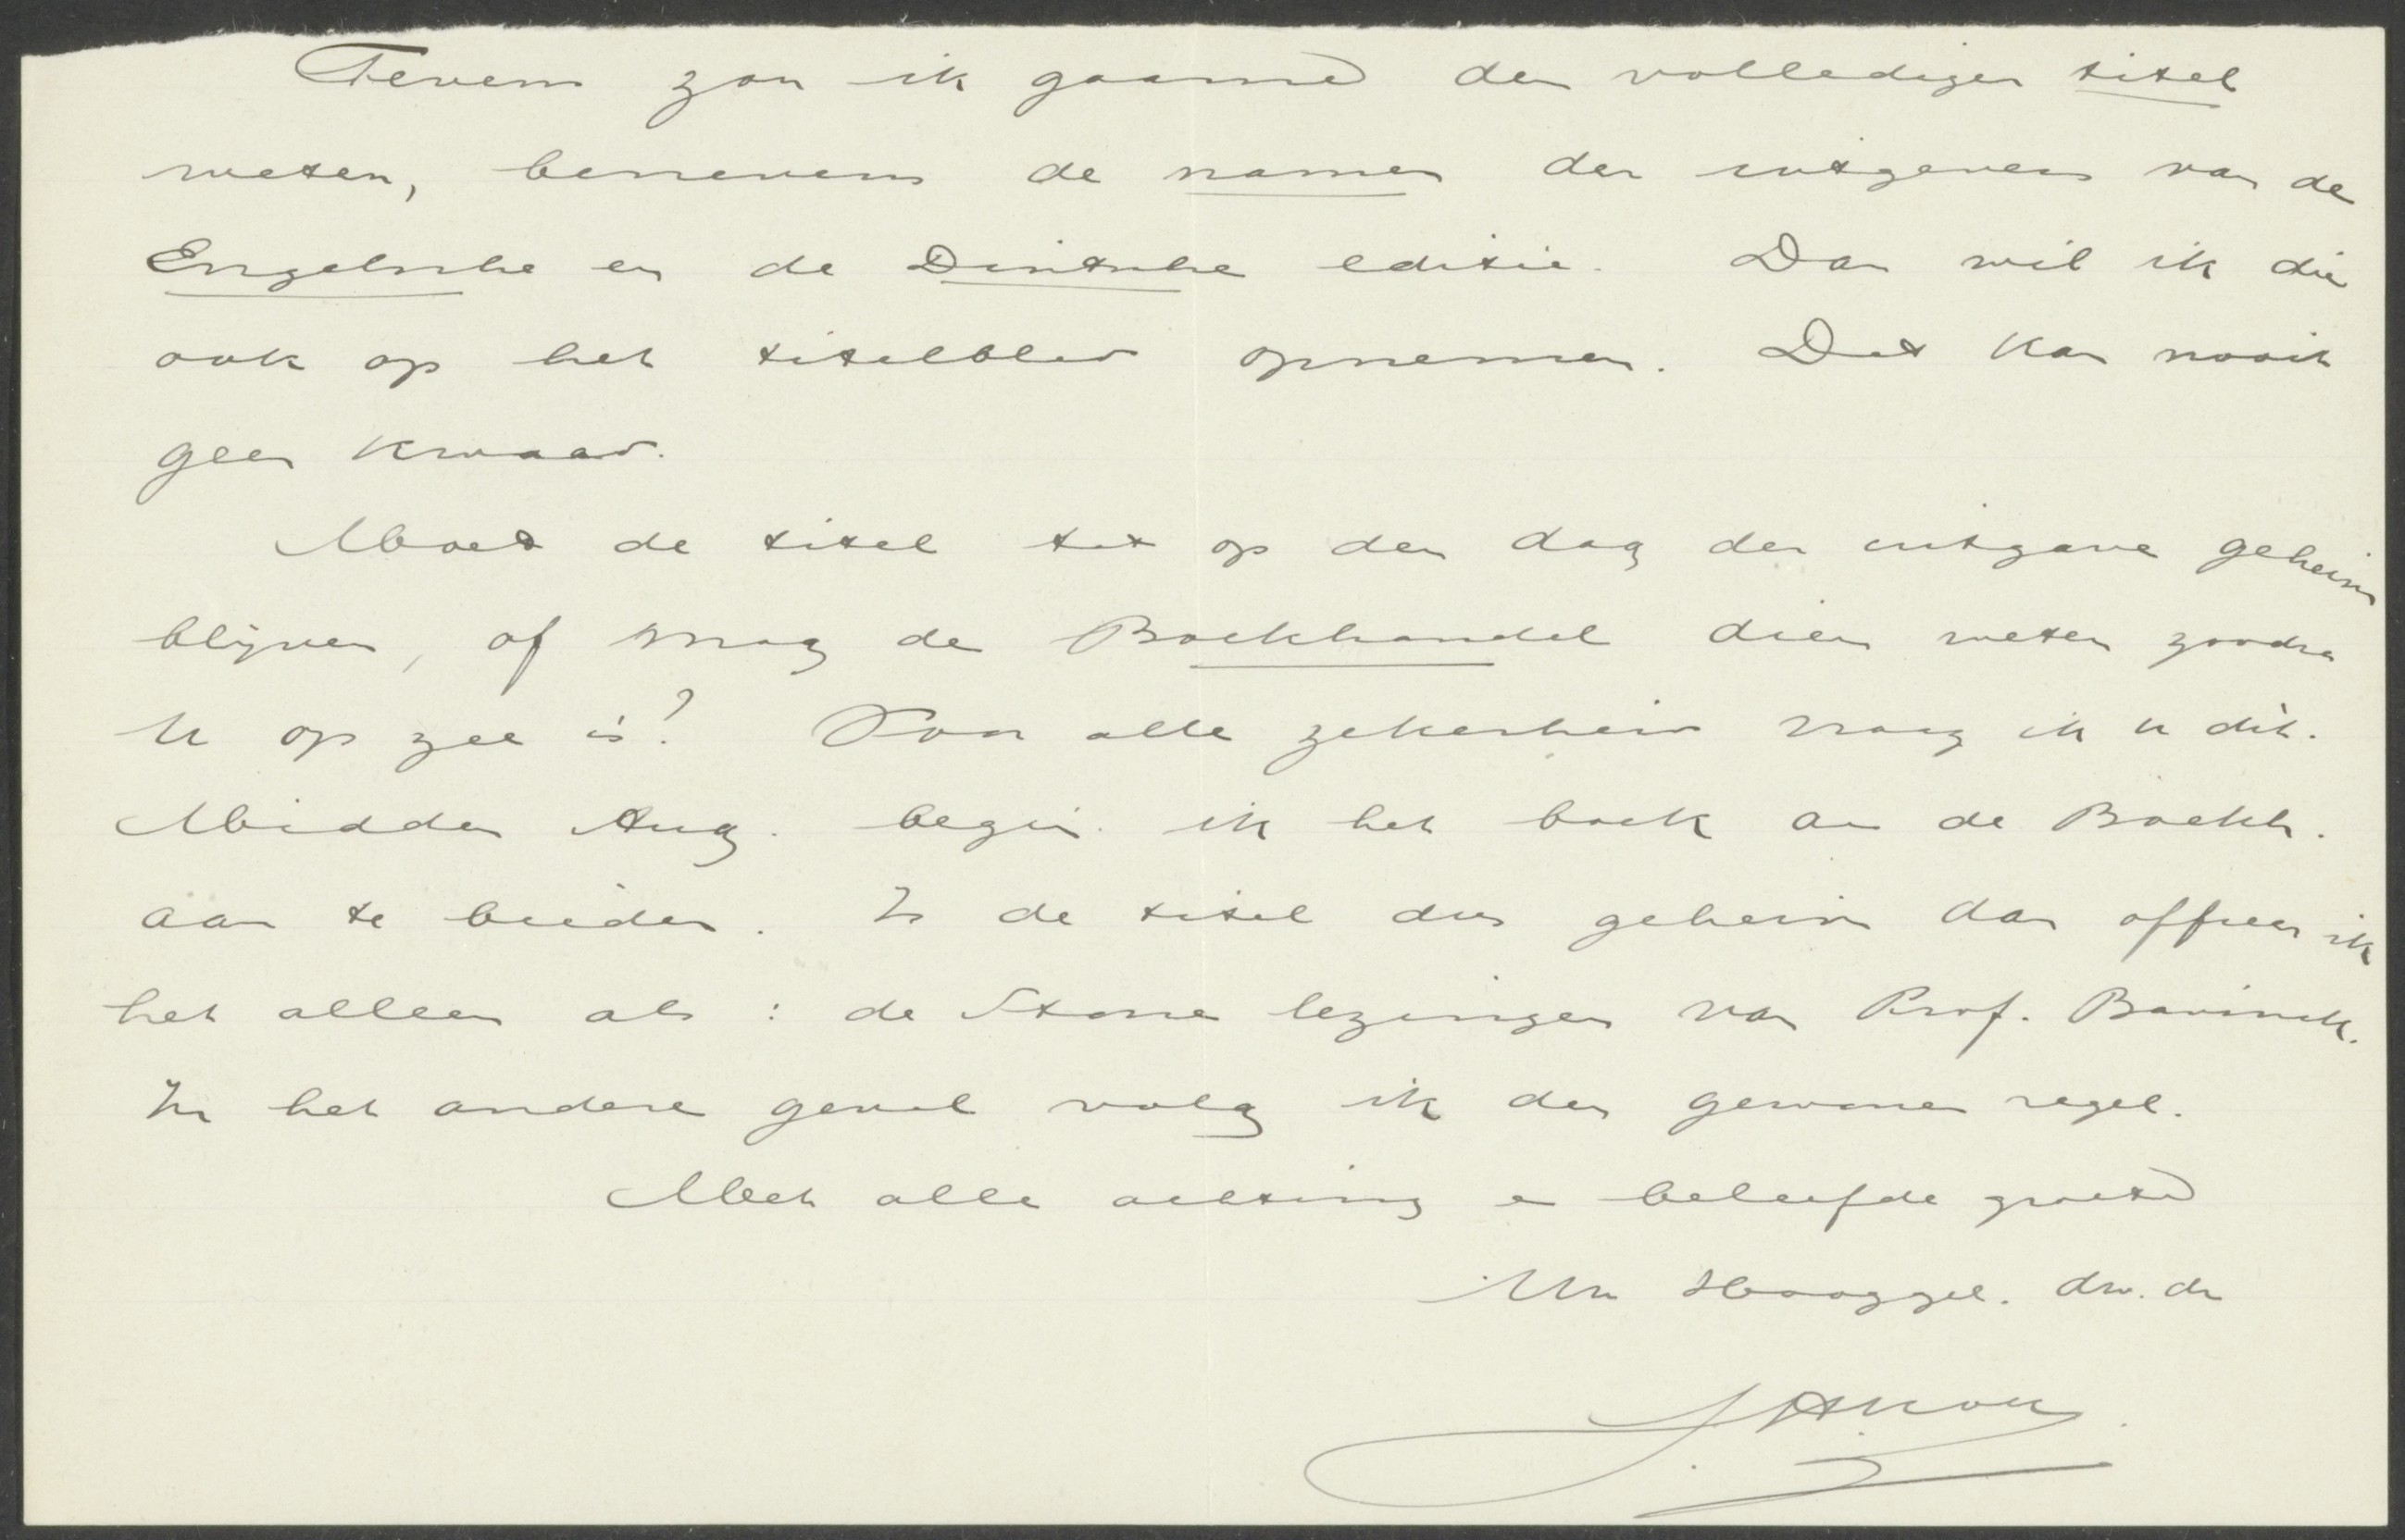 Tevens zou ik gaarne den volledigen titel
weten, benevens de namen der uitgevers van de
Engelsche en de Duitsche editie. Dan wil ik die
ook op het titelblad opnemen. Dat kan nooit
geen kwaad.
Moet de titel tot op den dag der uitgave geheim
blijven, of mag de Boekhandel dien weten zoodra
U op zee is? Voor alle zekerheid vraag ik u dit.
Midden Aug. begin ik het boek aan de Boekh.
aan te bieden. Is de titel dus geheim dan offreer ik
het alleen als : de Stone lezingen van Prof. Bavinck.
In het andere geval volg ik den gewonen regel.
Met alle achting en beleefde groete
Uw Hooggel. dw. dr
JHKok